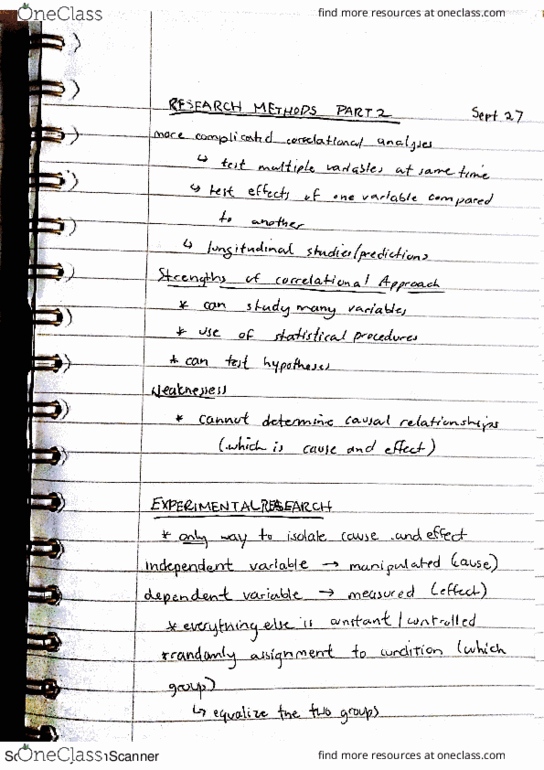 OneClass
find more resources at oneclass.com
RESEARCH METHODS PART 2 Sept 27
more complicated correlational analyses
↳ test multiple variables at same time
↳ test effects of one variable compared
to another
↳ longitudinal studies/predictions
Strengths of correlational Approach
* can study many variables
* use of statistical procedures
* can test hypotheses
Weaknesses
* cannot determine causal relationships
(which is cause and effect)
EXPERIMENTAL RESEARCH
* only way to isolate cause and effect
independent variable → manipulated (cause)
dependent variable → measured (effect)
* everything else is constant / controlled
* randomly assignment to condition (which
group)
↳ equalize the two groups
OneClass Scanner
find more resources at oneclass.com